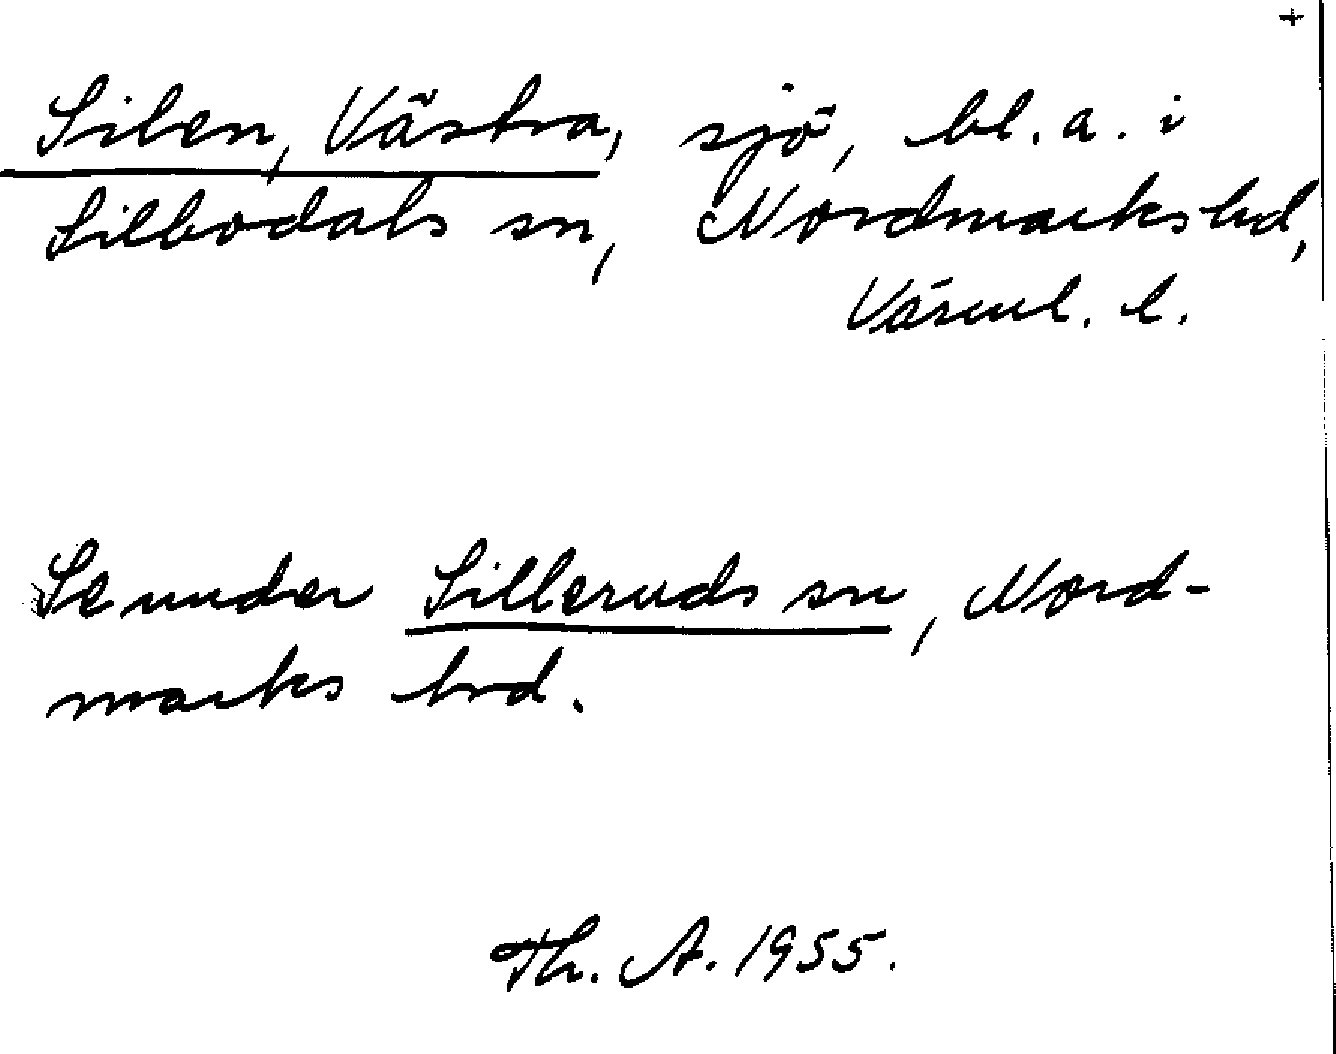 +
Silen, Västra, sjö, bl. a. i
Silbodals sn, Nordmarks hd,
Värml. l.
Se under Silleruds sn, Nord-
marks hrd.
Th. A. 1955.